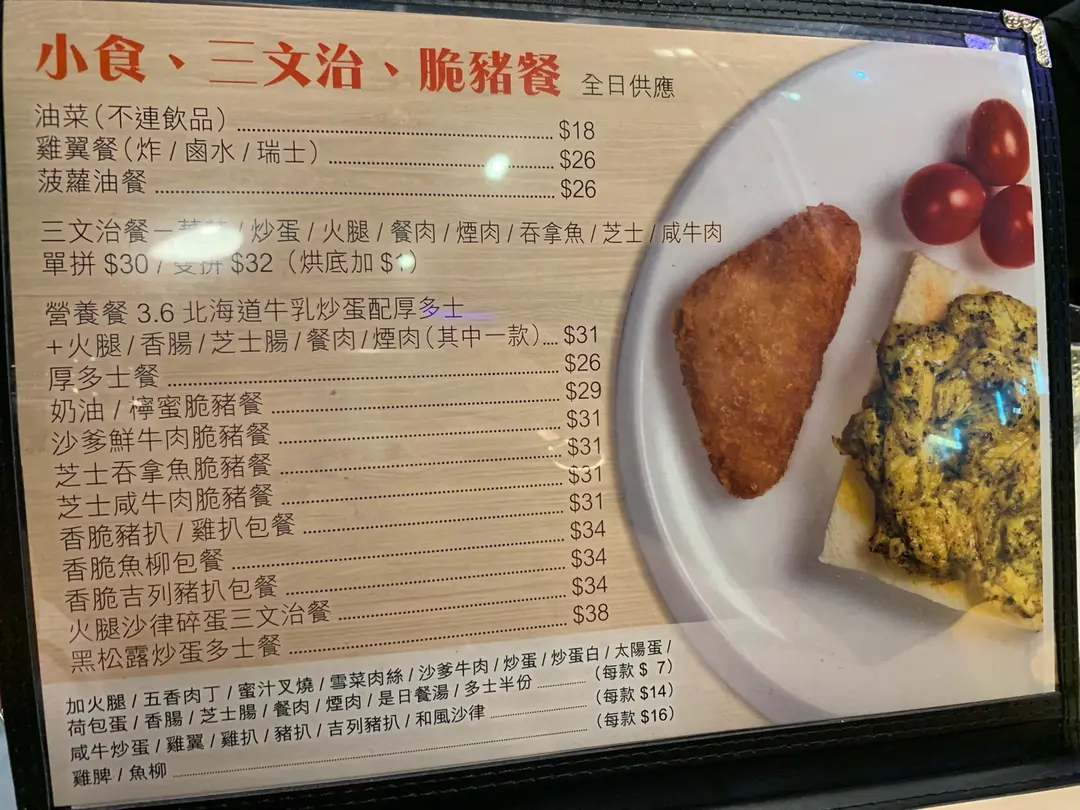 小食、三文治、脆豬餐 全日供應
油菜(不連飲品) $18
雞翼餐(炸/鹵水/瑞士) $26
菠蘿油餐 $26
三文治餐－ / 炒蛋 / 火腿 / 餐肉 / 煙肉 / 吞拿魚 / 芝士 / 咸牛肉
單拼 $30 / 雙拼 $32 (烘底加 $1)
營養餐 3.6 北海道牛乳炒蛋配厚多士
+火腿/香腸/芝士腸/餐肉/煙肉(其中一款) $31
厚多士餐 $26
奶油 / 檸蜜脆豬餐 $29
沙爹鮮牛肉脆豬餐 $31
芝士吞拿魚脆豬餐 $31
芝士咸牛肉脆豬餐 $31
香脆豬扒 / 雞扒包餐 $31
香脆魚柳包餐 $34
香脆吉列豬扒包餐 $34
火腿沙律碎蛋三文治餐 $34
黑松露炒蛋多士餐 $38
加火腿 / 五香肉丁 / 蜜汁叉燒 / 雪菜肉絲 / 沙爹牛肉 / 炒蛋 / 炒蛋白 / 太陽蛋 /
荷包蛋 / 香腸 / 芝士腸 / 餐肉 / 煙肉 / 是日餐湯 / 多士半份 (每款 $ 7)
咸牛炒蛋 / 雞翼 / 雞扒 / 豬扒 / 吉列豬扒 / 和風沙律 (每款 $14)
雞脾 / 魚柳 (每款 $16)